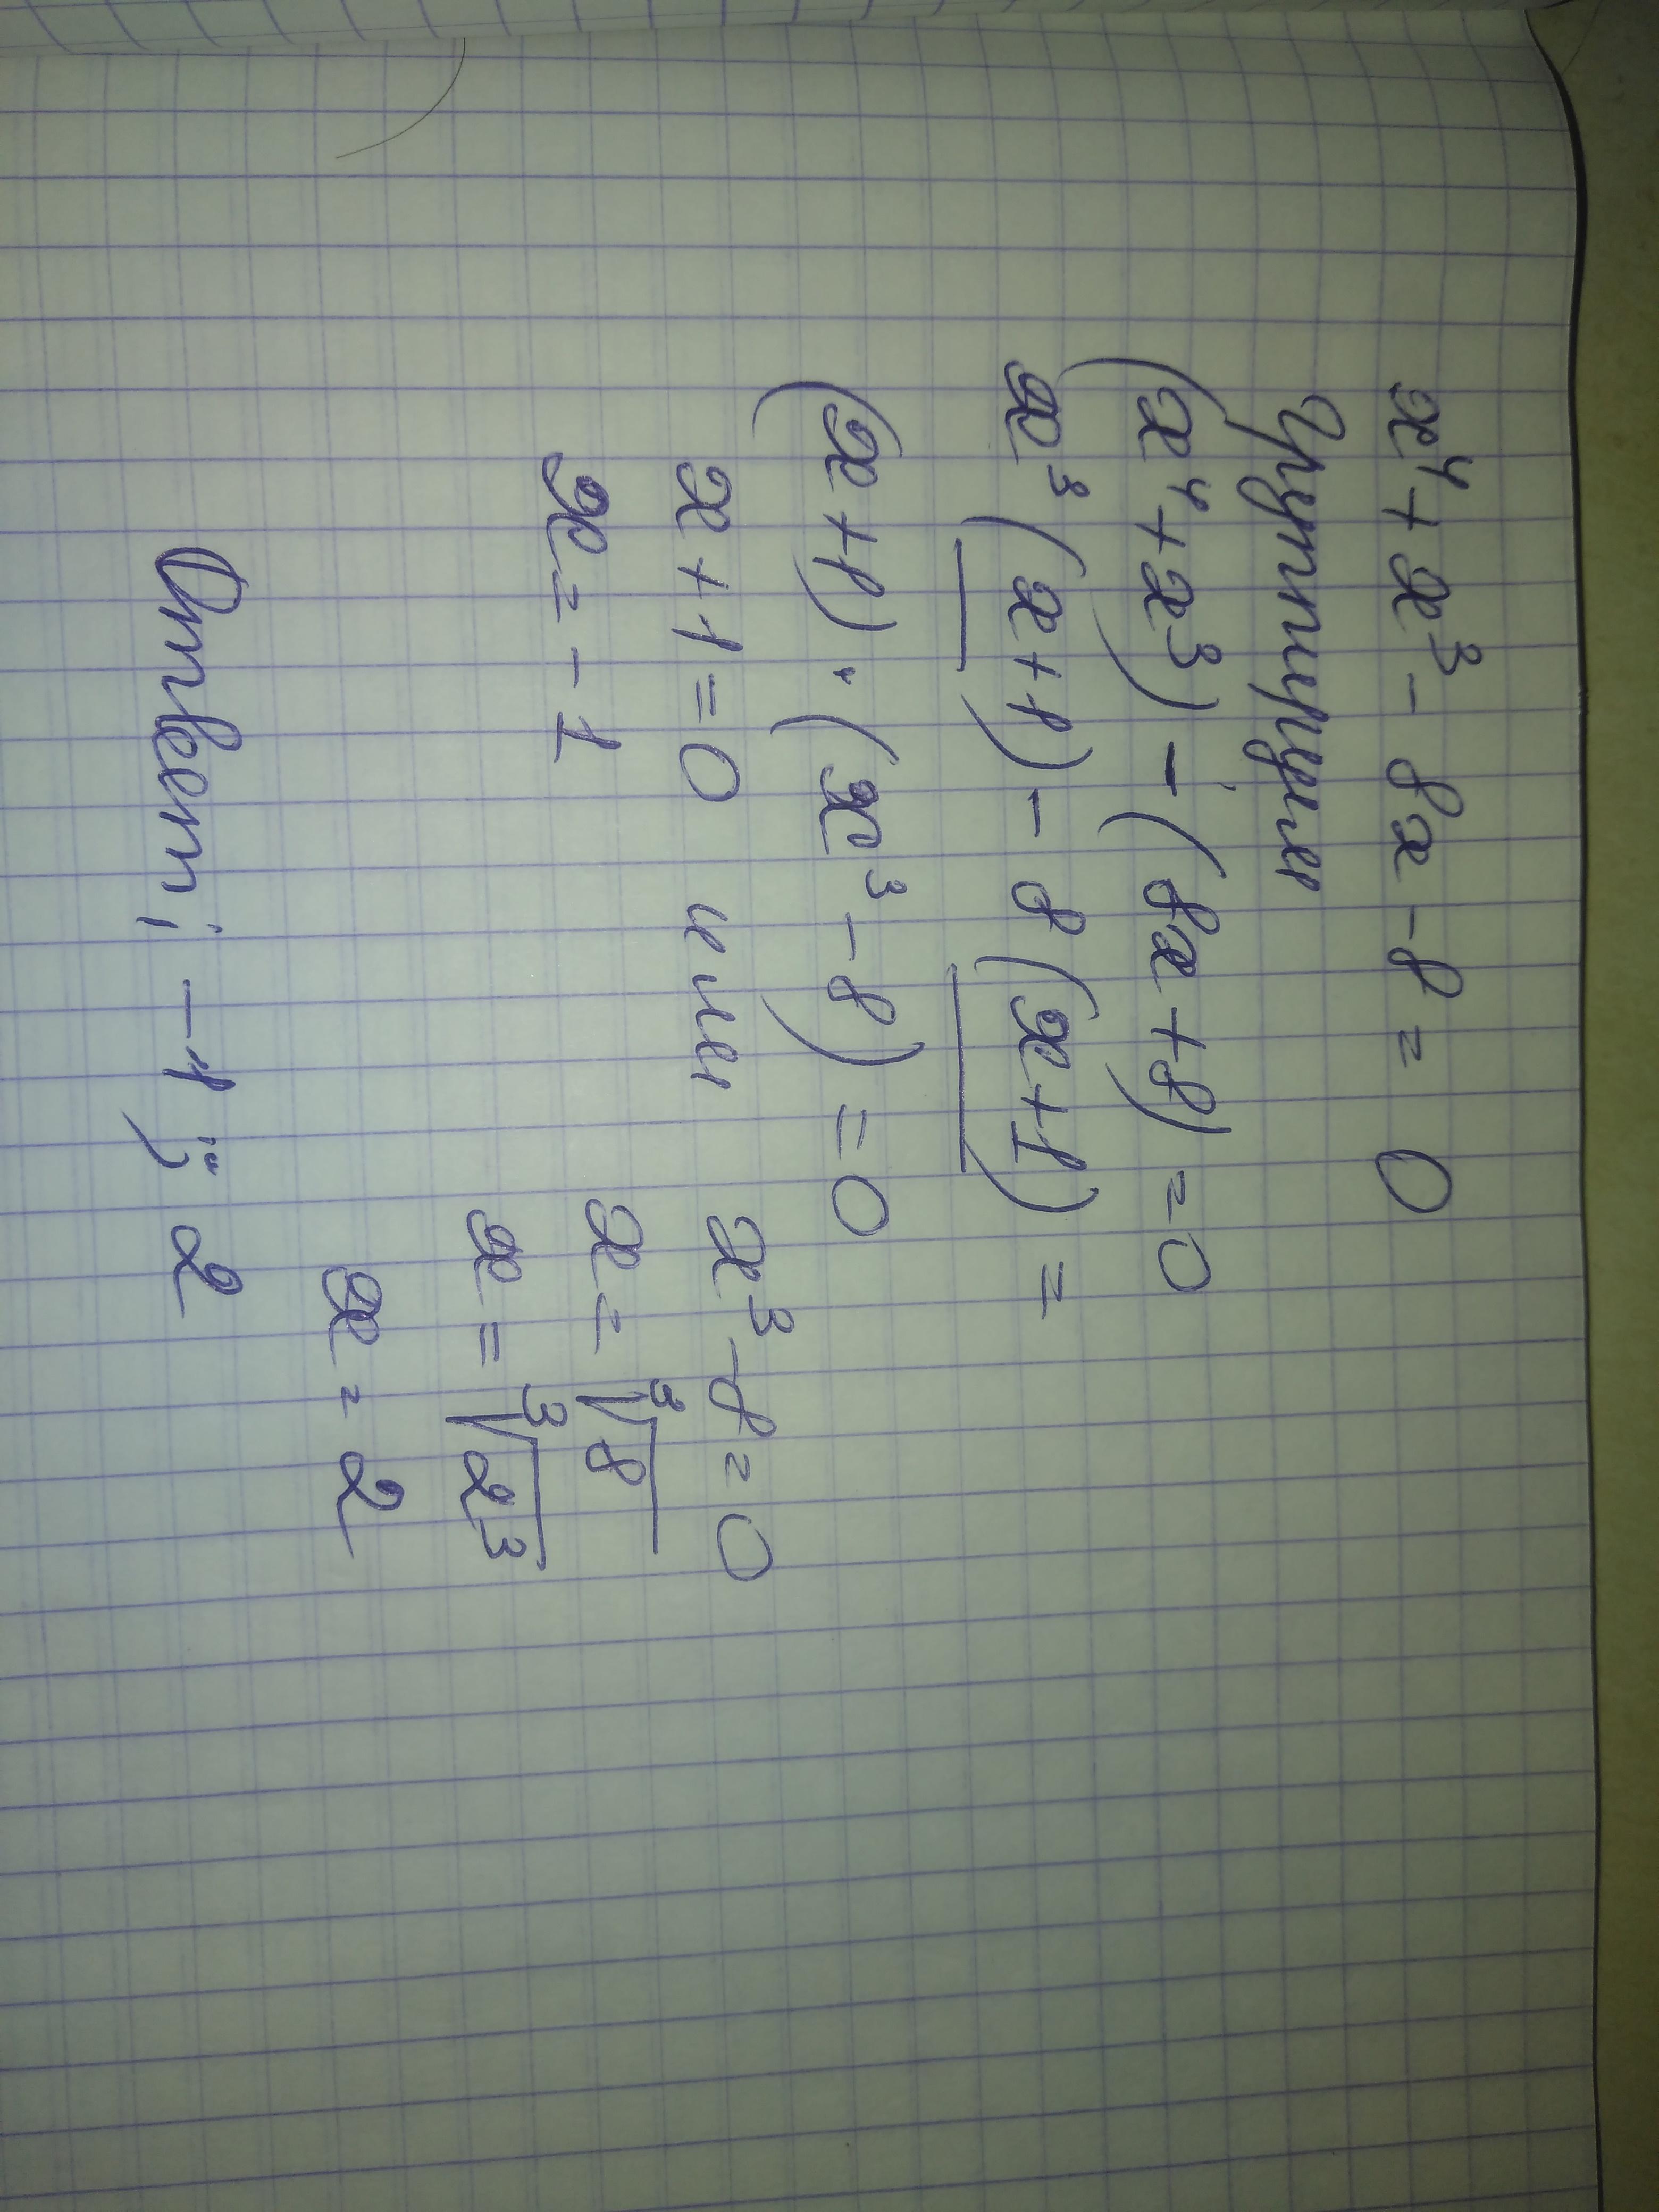 x⁴ + x³ - 8x - 8 = 0
Группируем
(x⁴ + x³) - (8x + 8) = 0
x³ (x + 1) - 8 (x + 1) =
(x + 1) · (x³ - 8) = 0
x + 1 = 0 или x³ - 8 = 0
x = - 1 x = ³√8
x = ³√2³
x = 2
Ответ: -1; 2